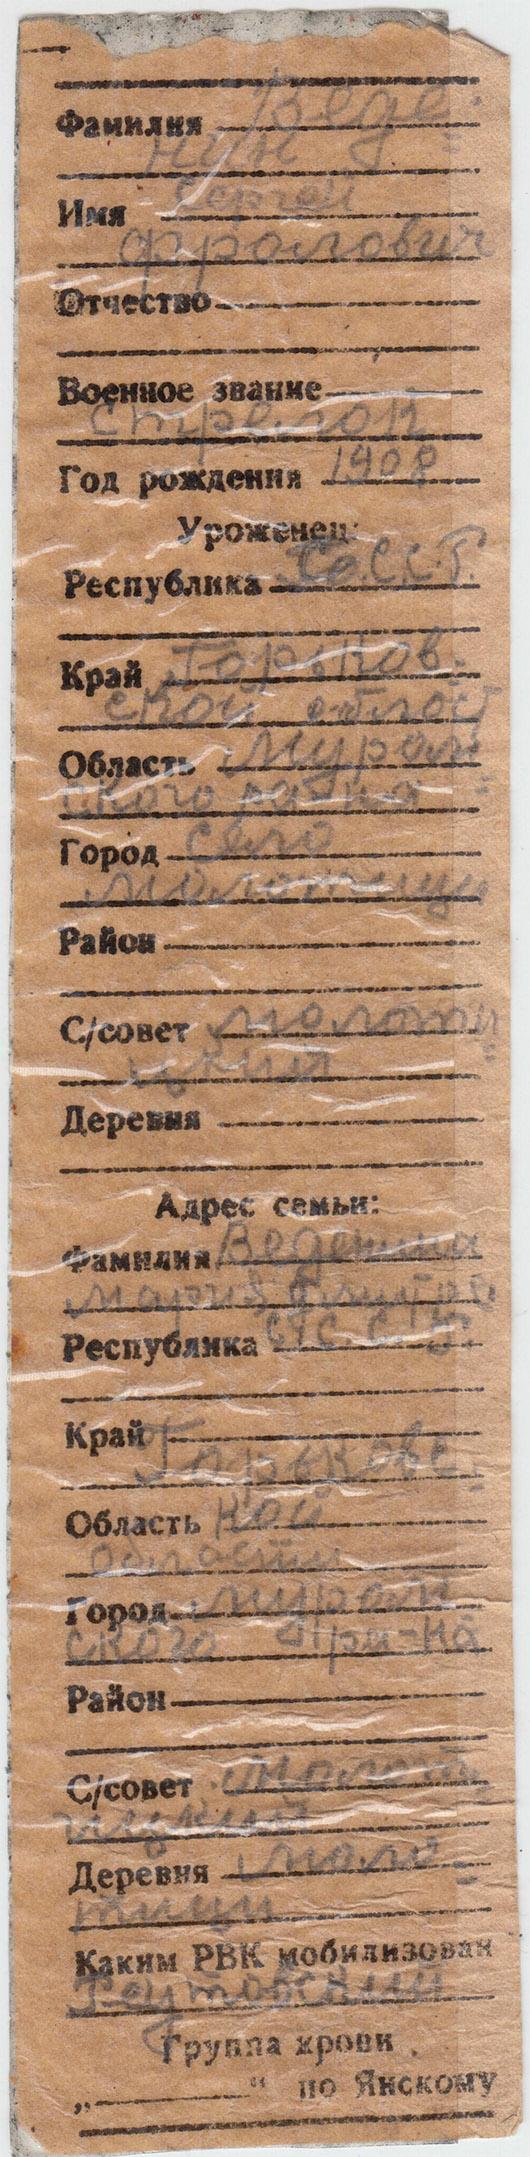 Фамилия Веде-
нин
Имя Сергей
Фролович
Отчество
Военное звание
стрелок
Год рождения 1908
Уроженец:
Республика
Край Горьков-
ской област
Область Муром-
ского ра-на
Город село
Молотицы
Район
С/совет молоти-
цкий
Деревня
Адрес семьи:
Фамилия Веденина
мария
Республика
Край
Горьковс-
Область кой
области
Город муром
ского ра-на
Район
С/совет молот-
ицкий
Деревня моло-
тицы
Каким РВК мобилизован
Реутовский
Группа крови
„ “ по Янскому